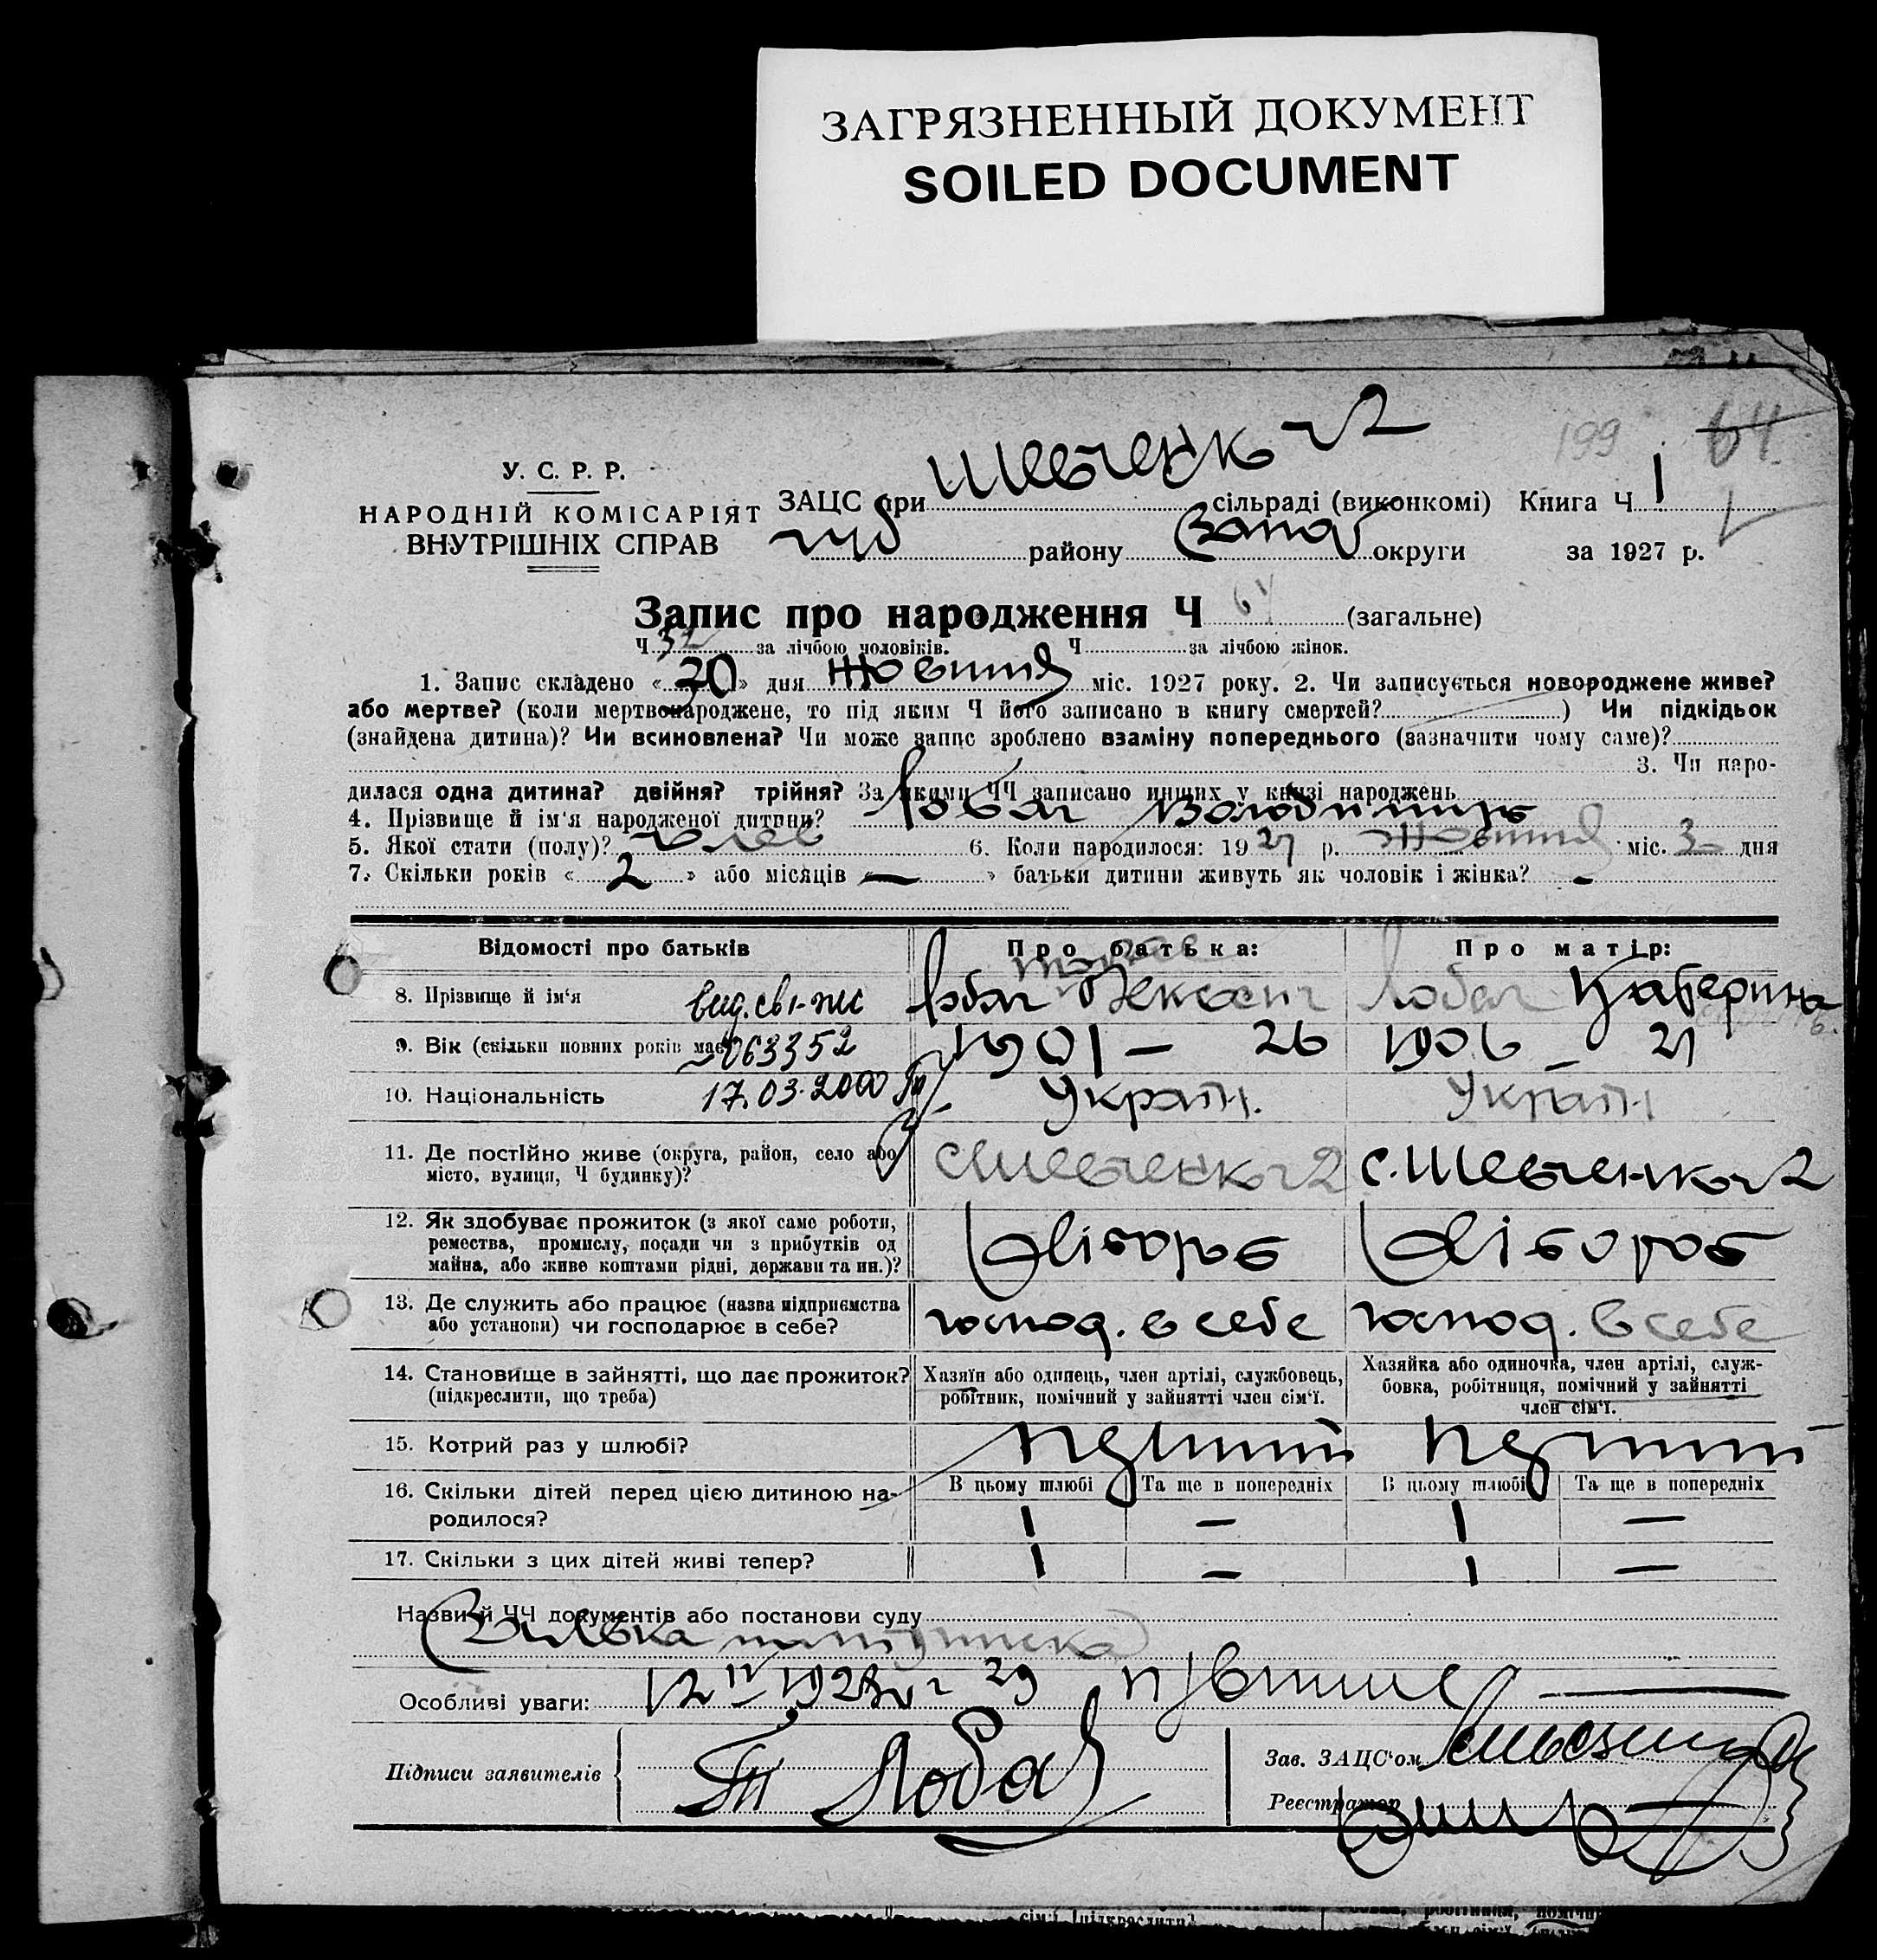 ЗАГРЯЗНЕННЫЙ ДОКУМЕНТ
SOILED DOCUMENT
199 64
У. С. Р. Р.
НАРОДНІЙ КОМІСАРІЯТ
ВНУТРІШНІХ СПРАВ
ЗАЦС при Шевченк № 2 сільраді (виконкомі) Книга Ч 1
району Запор округи за 1927 р.
Запис про народження Ч 64 (загальне)
Ч 32 за лічбою чоловіків. Ч за лічбою жінок.
1. Запис складено «30» дня Жовтня міс. 1927 року. 2. Чи записується новороджене живе?
або мертве? (коли мертвонароджене, то під яким Ч його записано в книгу смертей? ) Чи підкідьок
(знайдена дитина)? Чи всиновлена? Чи може запис зроблено взаміну попереднього (зазначити чому саме)?
3. Чи наро-
дилася одна дитина? двійня? трійня? За якими ЧЧ записано инших у книзі народжень
4. Прізвище й ім'я народженої дитини? Лобач Володимир
5. Якої стати (полу)? чолов 6. Коли народилося: 1927 р. Жовтня міс. 3 дня
7. Скільки років « 2 » або місяців « — » батьки дитини живуть як чоловік і жінка? -
Відомості про батьків Про батька: Про матір:
8. Прізвище й ім'я Лобач Лобач Катерина
9. Вік (скільки повних років має) 063352 1901 — 26 1906 — 21
10. Національність 17.03.2000 Україн. Україн
11. Де постійно живе (округа, район, село або
місто, вулиця, Ч будинку)? с Шевченко № 2 с. Шевченко № 2
12. Як здобуває прожиток (з якої саме роботи,
ремества, промислу, посади чи з прибутків од
майна, або живе коштами рідні, держави та ин.)? Хлібороб Хлібороб
13. Де служить або працює (назва підприємства
або установи) чи господарює в себе? господ. в себе господ. в себе
14. Становище в зайнятті, що дає прожиток?
(підкреслити, що треба)
Хазяїн або одинець, член артілі, службовець,
робітник, помічний у зайнятті член сім'ї.
Хазяйка або одиночка, член артілі, служ-
бовка, робітниця, помічний у зайнятті
член сім'ї.
15. Котрий раз у шлюбі? перший перший
16. Скільки дітей перед цією дитиною на-
родилося?
В цьому шлюбі Та ще в попередніх В цьому шлюбі Та ще в попередніх
1 — 1 —
17. Скільки з цих дітей живі тепер? 1 — 1 —
Назви й ЧЧ документів або постанови суду
Особливі уваги:
Підписи заявителів Лобач
Зав. ЗАЦС'ом
Реєстратор